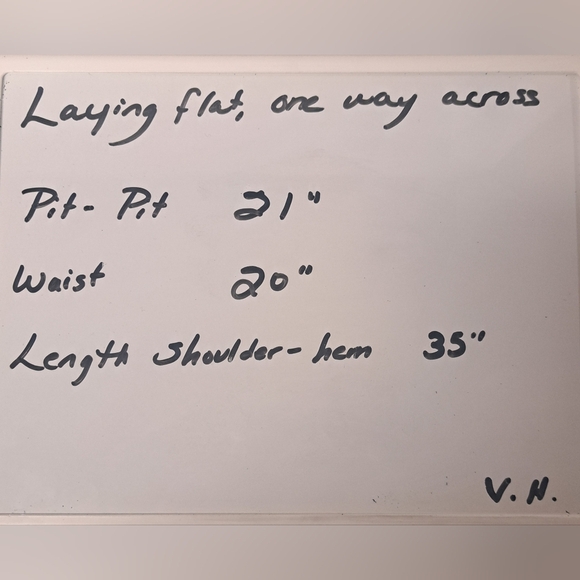 Laying flat, one way across
Pit- Pit 21"
Waist 20"
Length shoulder-hem 35"
V. H.